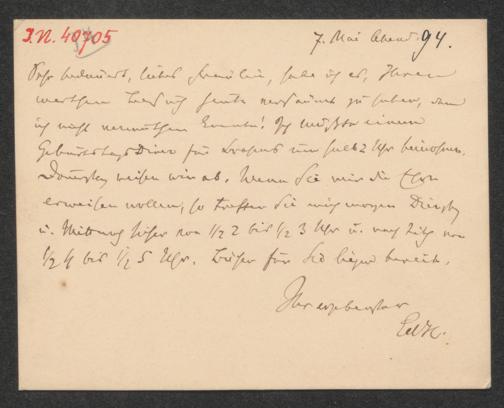 I.N. 49705
7. Mai Abend. 94.
Sehr bedauert, liebes Fräulein, habe ich es, Ihren
werthen Besuch heute versäumt zu haben, den
ich nicht vermuthen konnte! Ich mußte einem
Geburtstags Diner für um halb 2 Uhr beiwohnen.
Donnerstag reisen wir ab. Wenn Sie mir die Ehre
erweisen wollen, so treffen Sie mich morgen Dienstag
u. Mittwoch sicher von 1/2 2 bis 1/2 3 Uhr u. nach Tisch von
1/2 4 bis 1/2 5 Uhr. Bücher für Sie liegen bereit.
Ihr ergebenster
EdH.